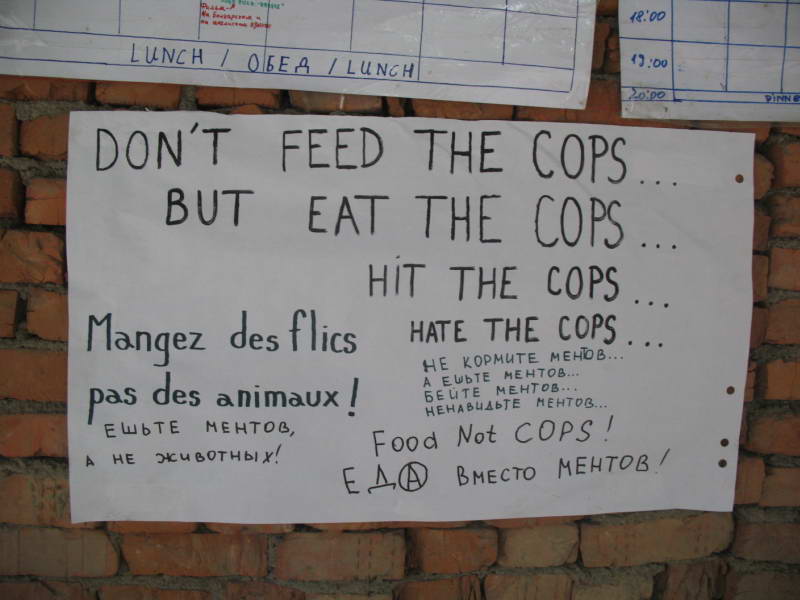 Фильм
На болгарском и
LUNCH / ОБЕД / LUNCH
18:00
19:00
20:00
DINNE
DON'T FEED THE COPS...
BUT EAT THE COPS...
HIT THE COPS...
HATE THE COPS...
Mangez des flics
pas des animaux!
ЕШЬТЕ МЕНТОВ,
А НЕ ЖИВОТНЫХ!
НЕ КОРМИТЕ МЕНТОВ...
А ЕШЬТЕ МЕНТОВ...
БЕЙТЕ МЕНТОВ...
НЕНАВИДЬТЕ МЕНТОВ...
Food Not COPS!
ЕДА ВМЕСТО МЕНТОВ!